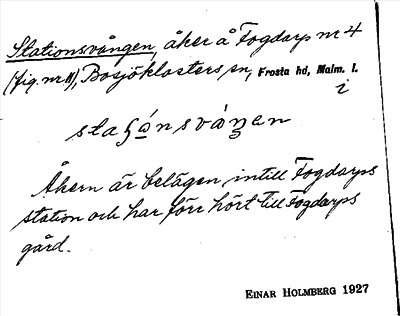 Stationsvången, åker å Fogdarp nr 4
(fig. nr 11), Bosjöklosters sn, Frosta hd, Malm. l.
i
Åkern är belägen intill Fogdarps
station och har förr hört till Fogdarps
gård.
EINAR HOLMBERG 1927